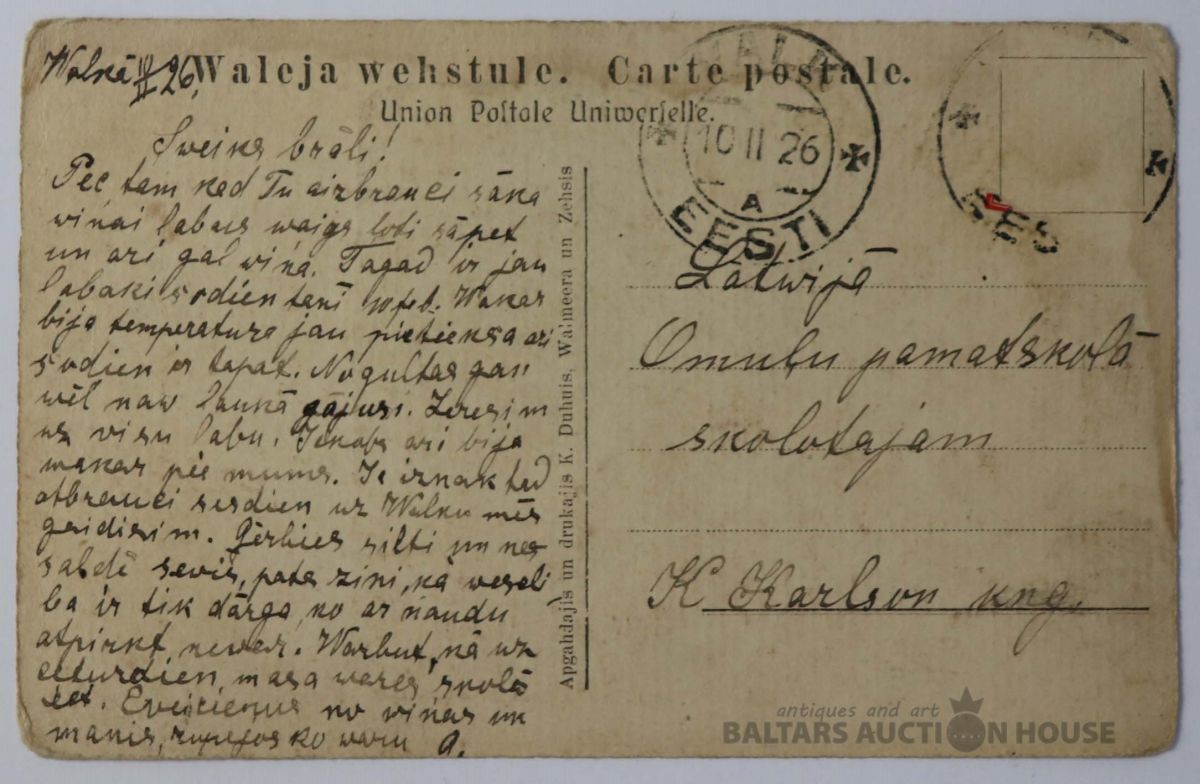 Walkā 10/II 26,
Waleja wehstule. Carte postale.
Union Postale Uniwerselle.
Sweiks brāli!
Pēc tam kad Tu aizbrauci sāka
wiņai labais waigs loti sāpet
un ari galwiņa. Tagad ir jau
labaki sodien
bija temperatura jau pietieksa ari
sodien ir tapat. No gultas gan
wēl naw laukā gājusi. Zeresim
uz visu labu. Jekabs ari bija
wakar pie mums. Ja iznāk tad
atbrauci sesdien uz Walku mēs
gaidisim. Gērbies silti un ne
saldē sevis, pats zini, kā weseli
ba ir tik dārga, ko ar naudu
atpirkt newar. Warbut, kā uz
ceturdien, masa wares skolā
iet. Sveicienus no viņas un
manis, rupejos ko waru A.
Apgahdajis un drukajis K. Duhuis, Walmeera un Zehsis
WALK
10 II 26
A
EESTI
EES
Latwijā
Omuļu pamatskolā
skolotajam
K Karlson kng.
antiques and art
BALTARS AUCTION HOUSE